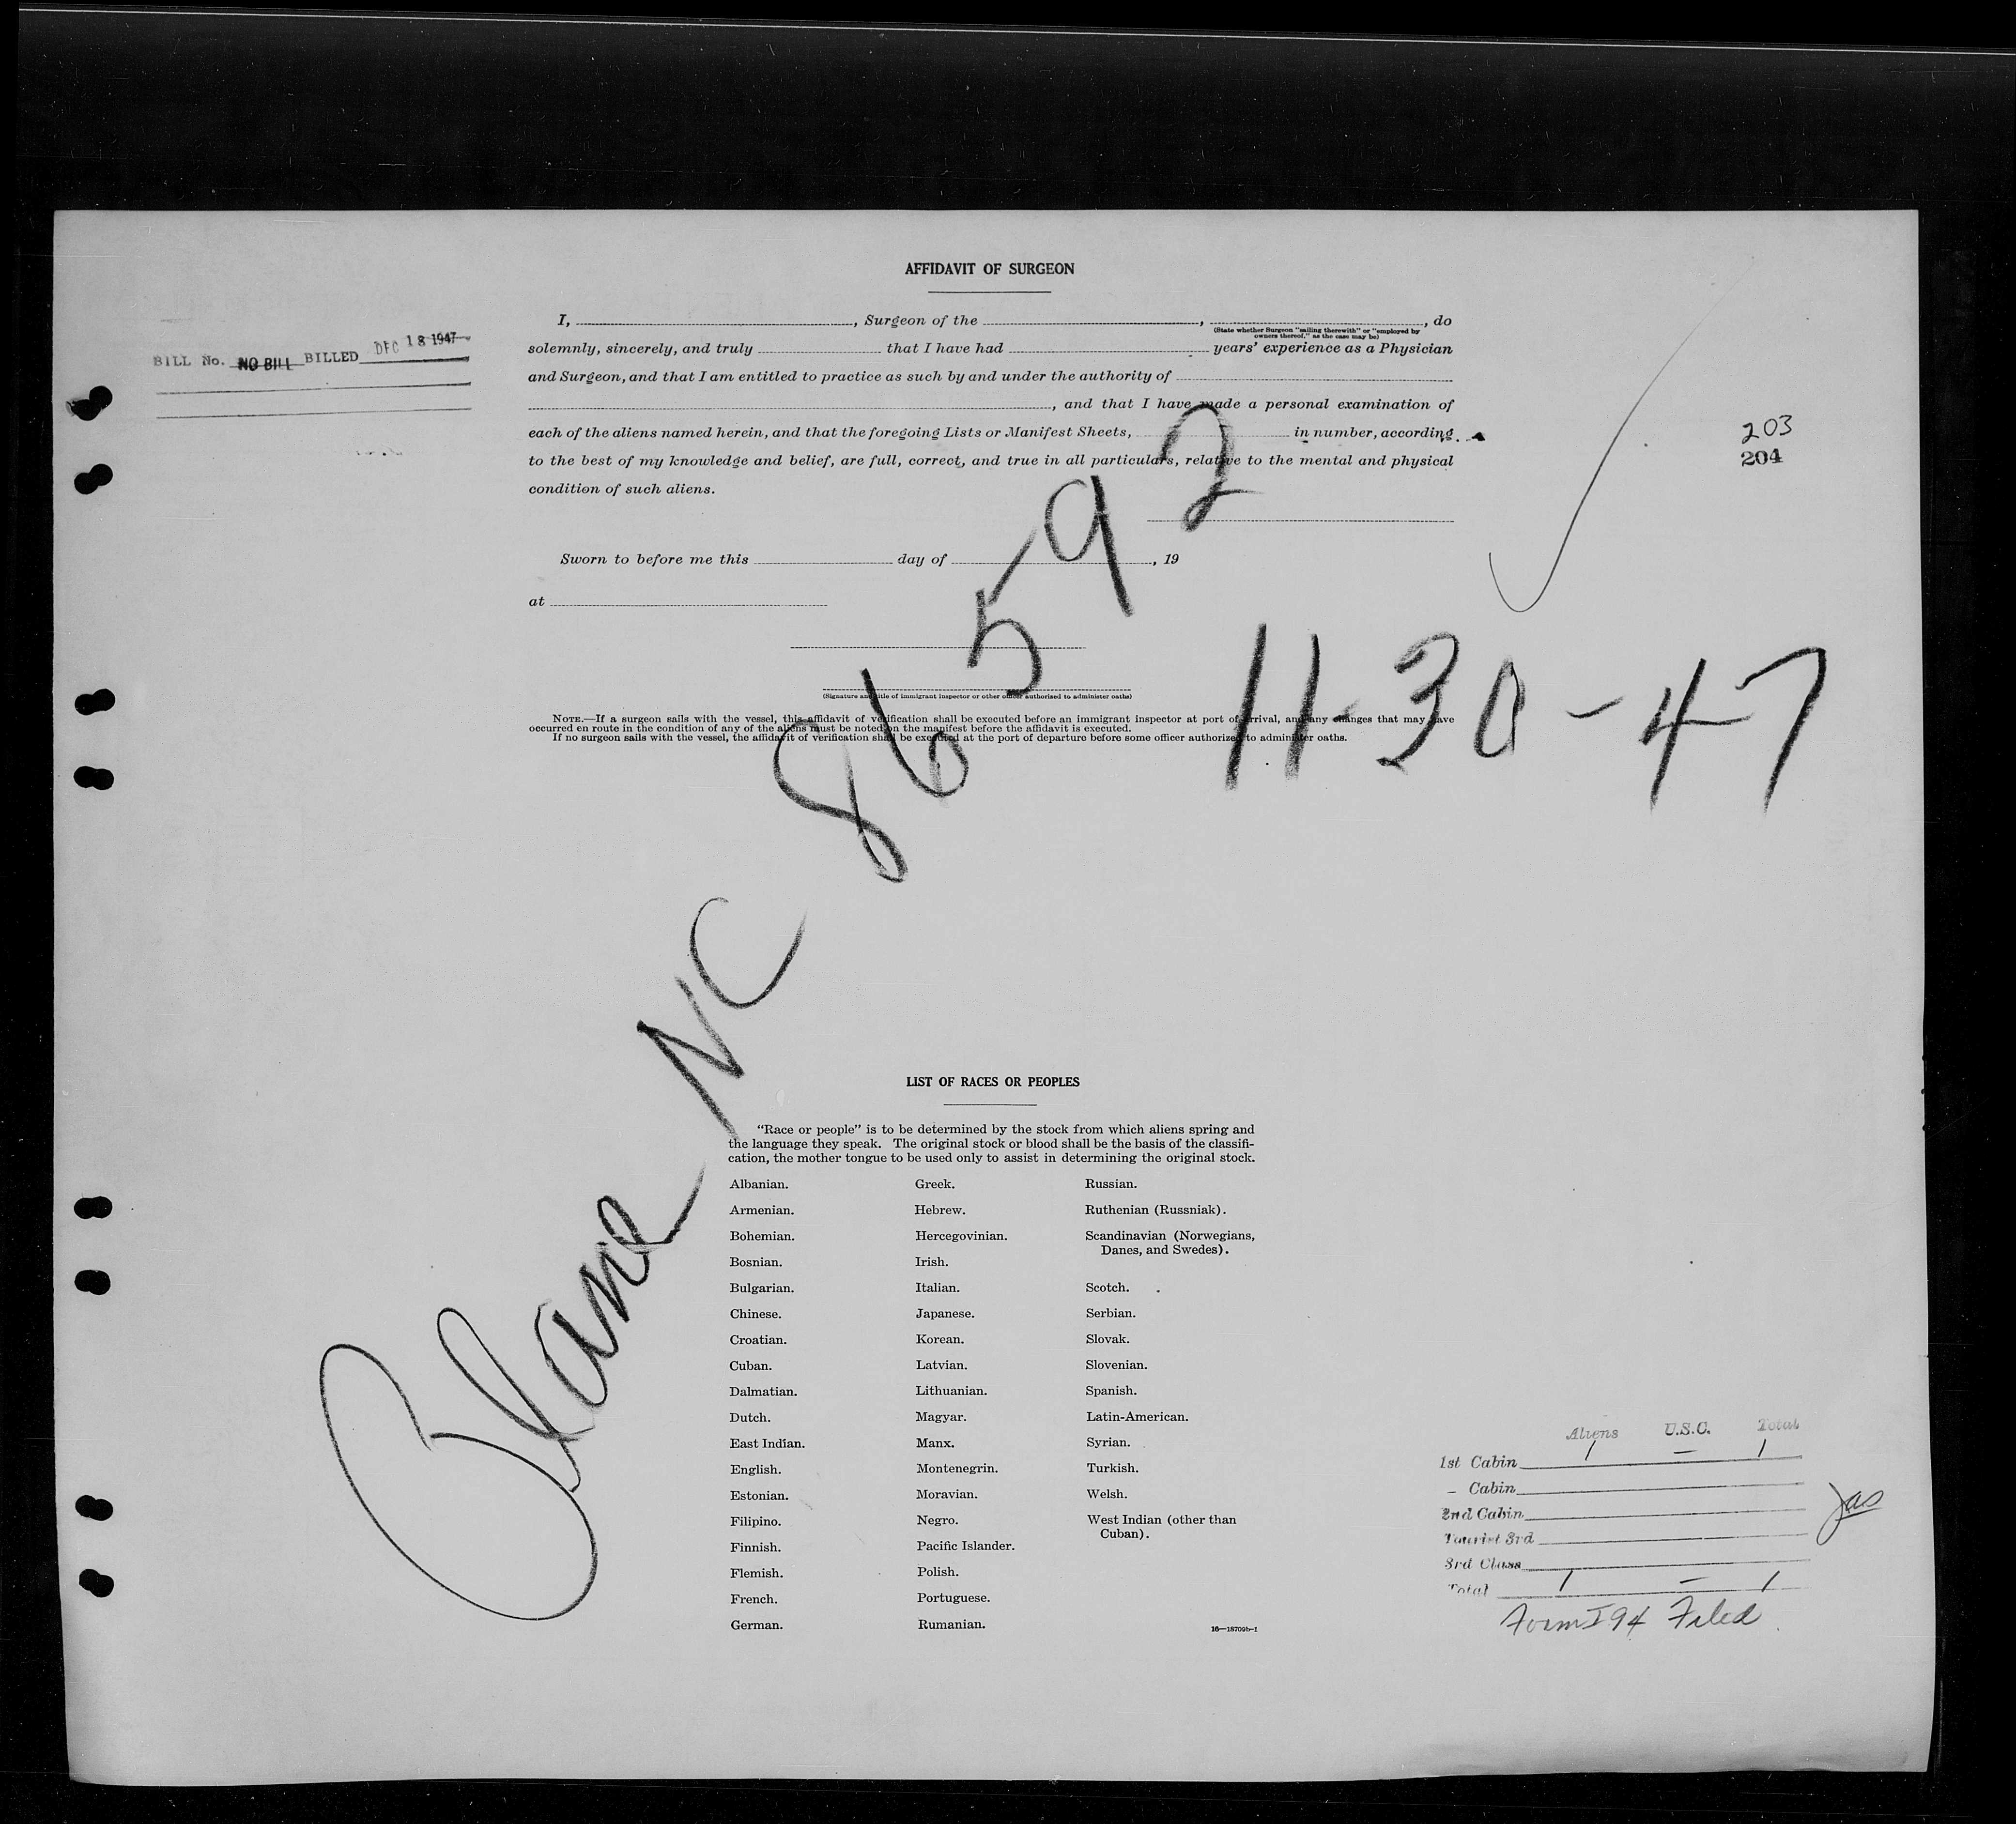 AFFIDAVIT OF SURGEON
I, , Surgeon of the , , do
(State whether Surgeon "sailing therewith" or "employed by
owners thereof," as the case may be)
solemnly, sincerely, and truly that I have had years' experience as a Physician
and Surgeon, and that I am entitled to practice as such by and under the authority of
, and that I have made a personal examination of
each of the aliens named herein, and that the foregoing Lists or Manifest Sheets, in number, according
to the best of my knowledge and belief, are full, correct, and true in all particulars, relative to the mental and physical
condition of such aliens.
Sworn to before me this day of , 19
at
(Signature and title of immigrant inspector or other officer authorized to administer oaths)
NOTE.—If a surgeon sails with the vessel, this affidavit of verification shall be executed before an immigrant inspector at port of arrival, and any changes that may have
occurred en route in the condition of any of the aliens must be noted on the manifest before the affidavit is executed.
If no surgeon sails with the vessel, the affidavit of verification shall be executed at the port of departure before some officer authorized to administer oaths.
BILL No. NO BILL BILLED DEC 18 1947
203
204
Plane NC 86592
11-30-47
LIST OF RACES OR PEOPLES
"Race or people" is to be determined by the stock from which aliens spring and
the language they speak. The original stock or blood shall be the basis of the classifi-
cation, the mother tongue to be used only to assist in determining the original stock.
Albanian.
Armenian.
Bohemian.
Bosnian.
Bulgarian.
Chinese.
Croatian.
Cuban.
Dalmatian.
Dutch.
East Indian.
English.
Estonian.
Filipino.
Finnish.
Flemish.
French.
German.
Greek.
Hebrew.
Hercegovinian.
Irish.
Italian.
Japanese.
Korean.
Latvian.
Lithuanian.
Magyar.
Manx.
Montenegrin.
Moravian.
Negro.
Pacific Islander.
Polish.
Portuguese.
Rumanian.
Russian.
Ruthenian (Russniak).
Scandinavian (Norwegians,
Danes, and Swedes).
Scotch.
Serbian.
Slovak.
Slovenian.
Spanish.
Latin-American.
Syrian.
Turkish.
Welsh.
West Indian (other than
Cuban).
16—18709b-1
Aliens U.S.C. Total
1st Cabin 1 — 1
- Cabin
2nd Cabin
Tourist 3rd
3rd Class
Total 1 — 1
Form I 94 Filed